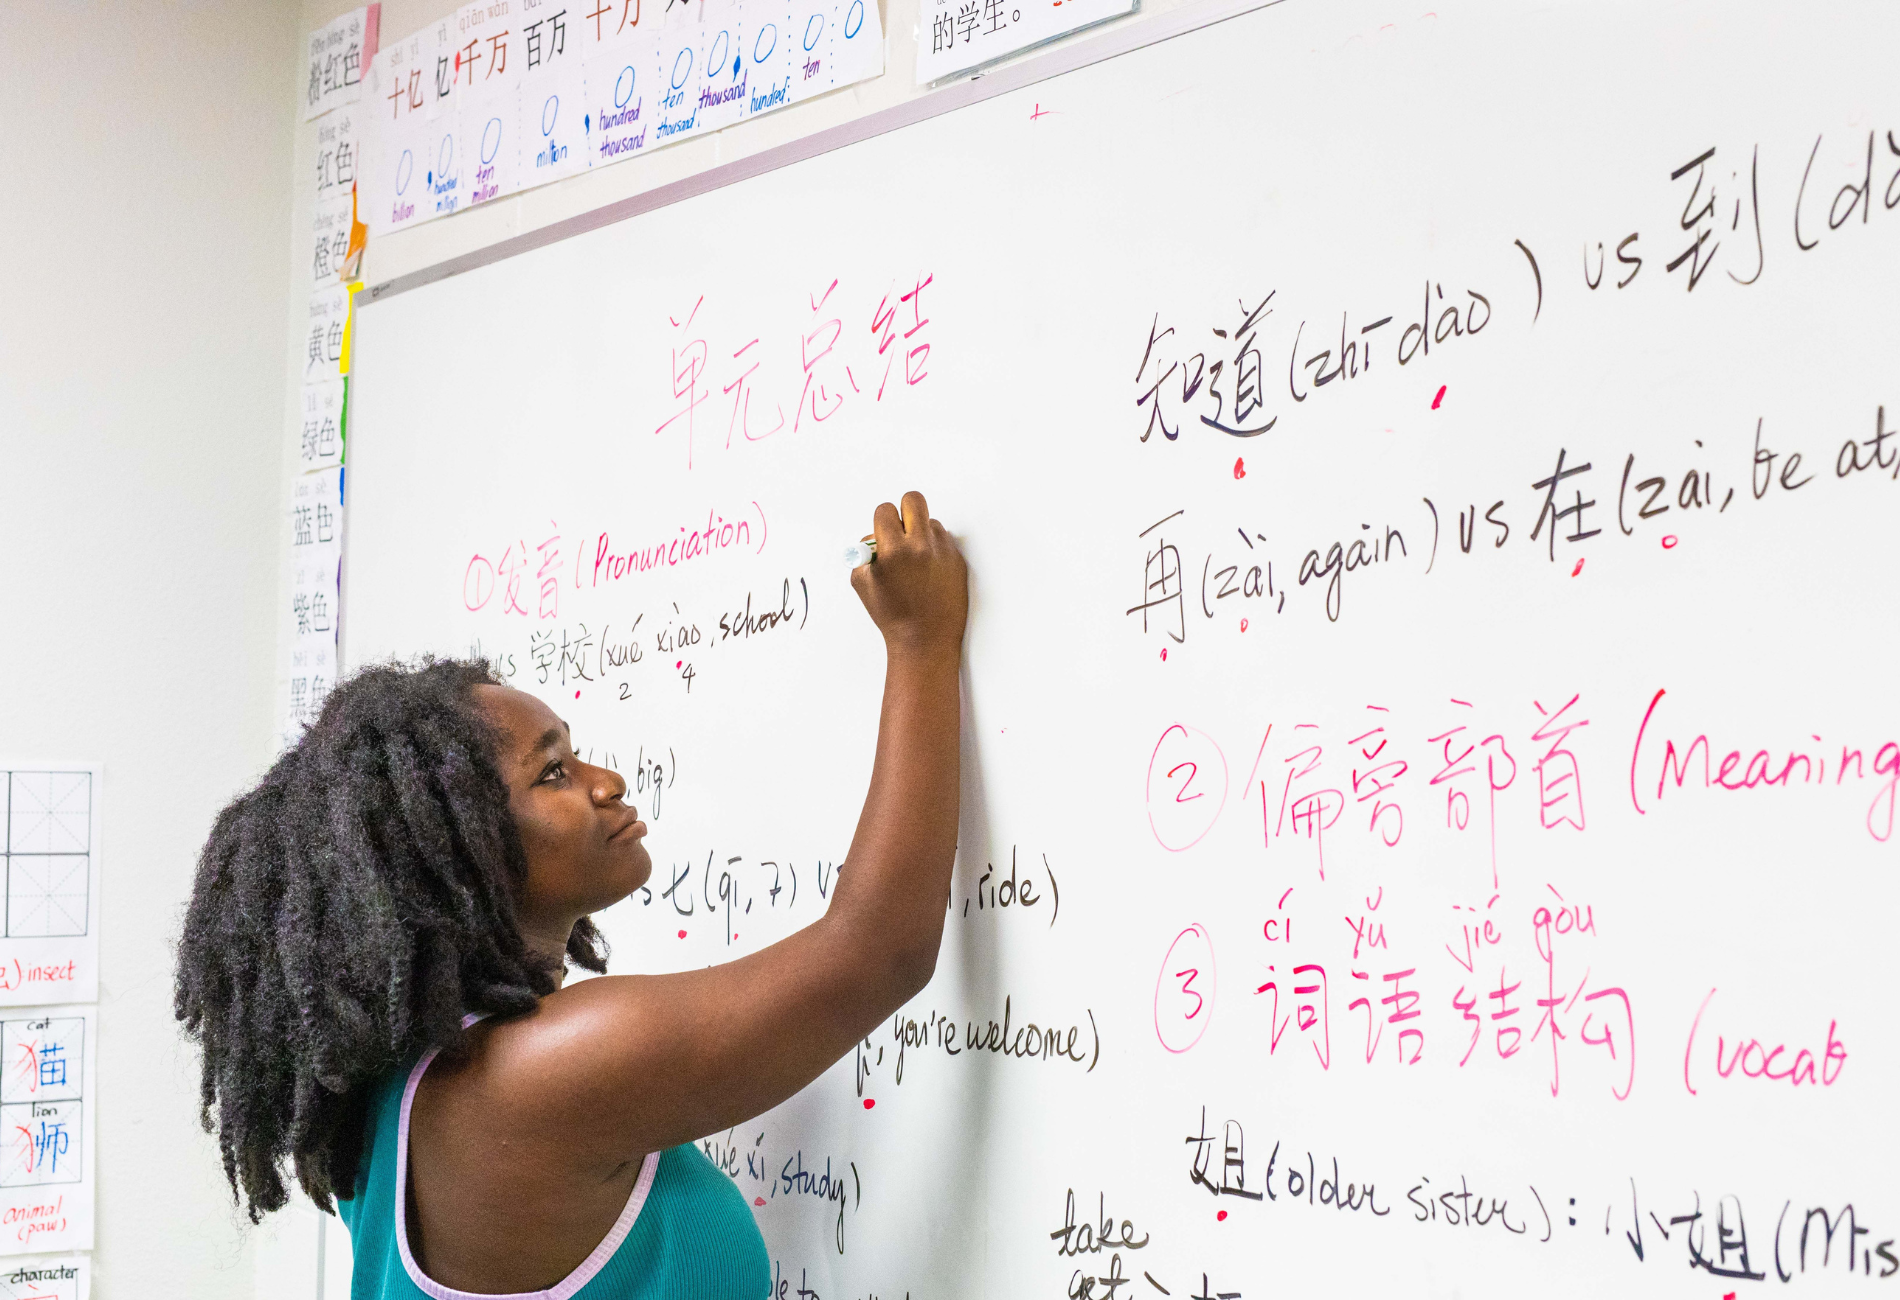 fěn hóng sè
粉红色
hóng sè
红色
chéng sè
橙色
huáng sè
黄色
lǜ sè
绿色
lán sè
蓝色
zǐ sè
紫色
hēi sè
黑色
shí yì yì qiān wàn
十亿 亿 千万 百万 十万
billion hundred million ten million million hundred thousand ten thousand thousand hundred ten
的学生。
单元总结
①发音(Pronunciation)
vs 学校(xué xiào, school)
2 4
, big)
七(qī, 7) vs , ride)
, you're welcome)
xué xí, study)
知道(zhī dào) vs 到(dà
再(zài, again) vs 在(zài, be at,
② 偏旁部首 (Meaning
cí yǔ jié gòu
③ 词语结构 (vocab
姐(older sister): 小姐(Mis
take
get
insect
cat
猫
lion
狮
animal
(paw)
character